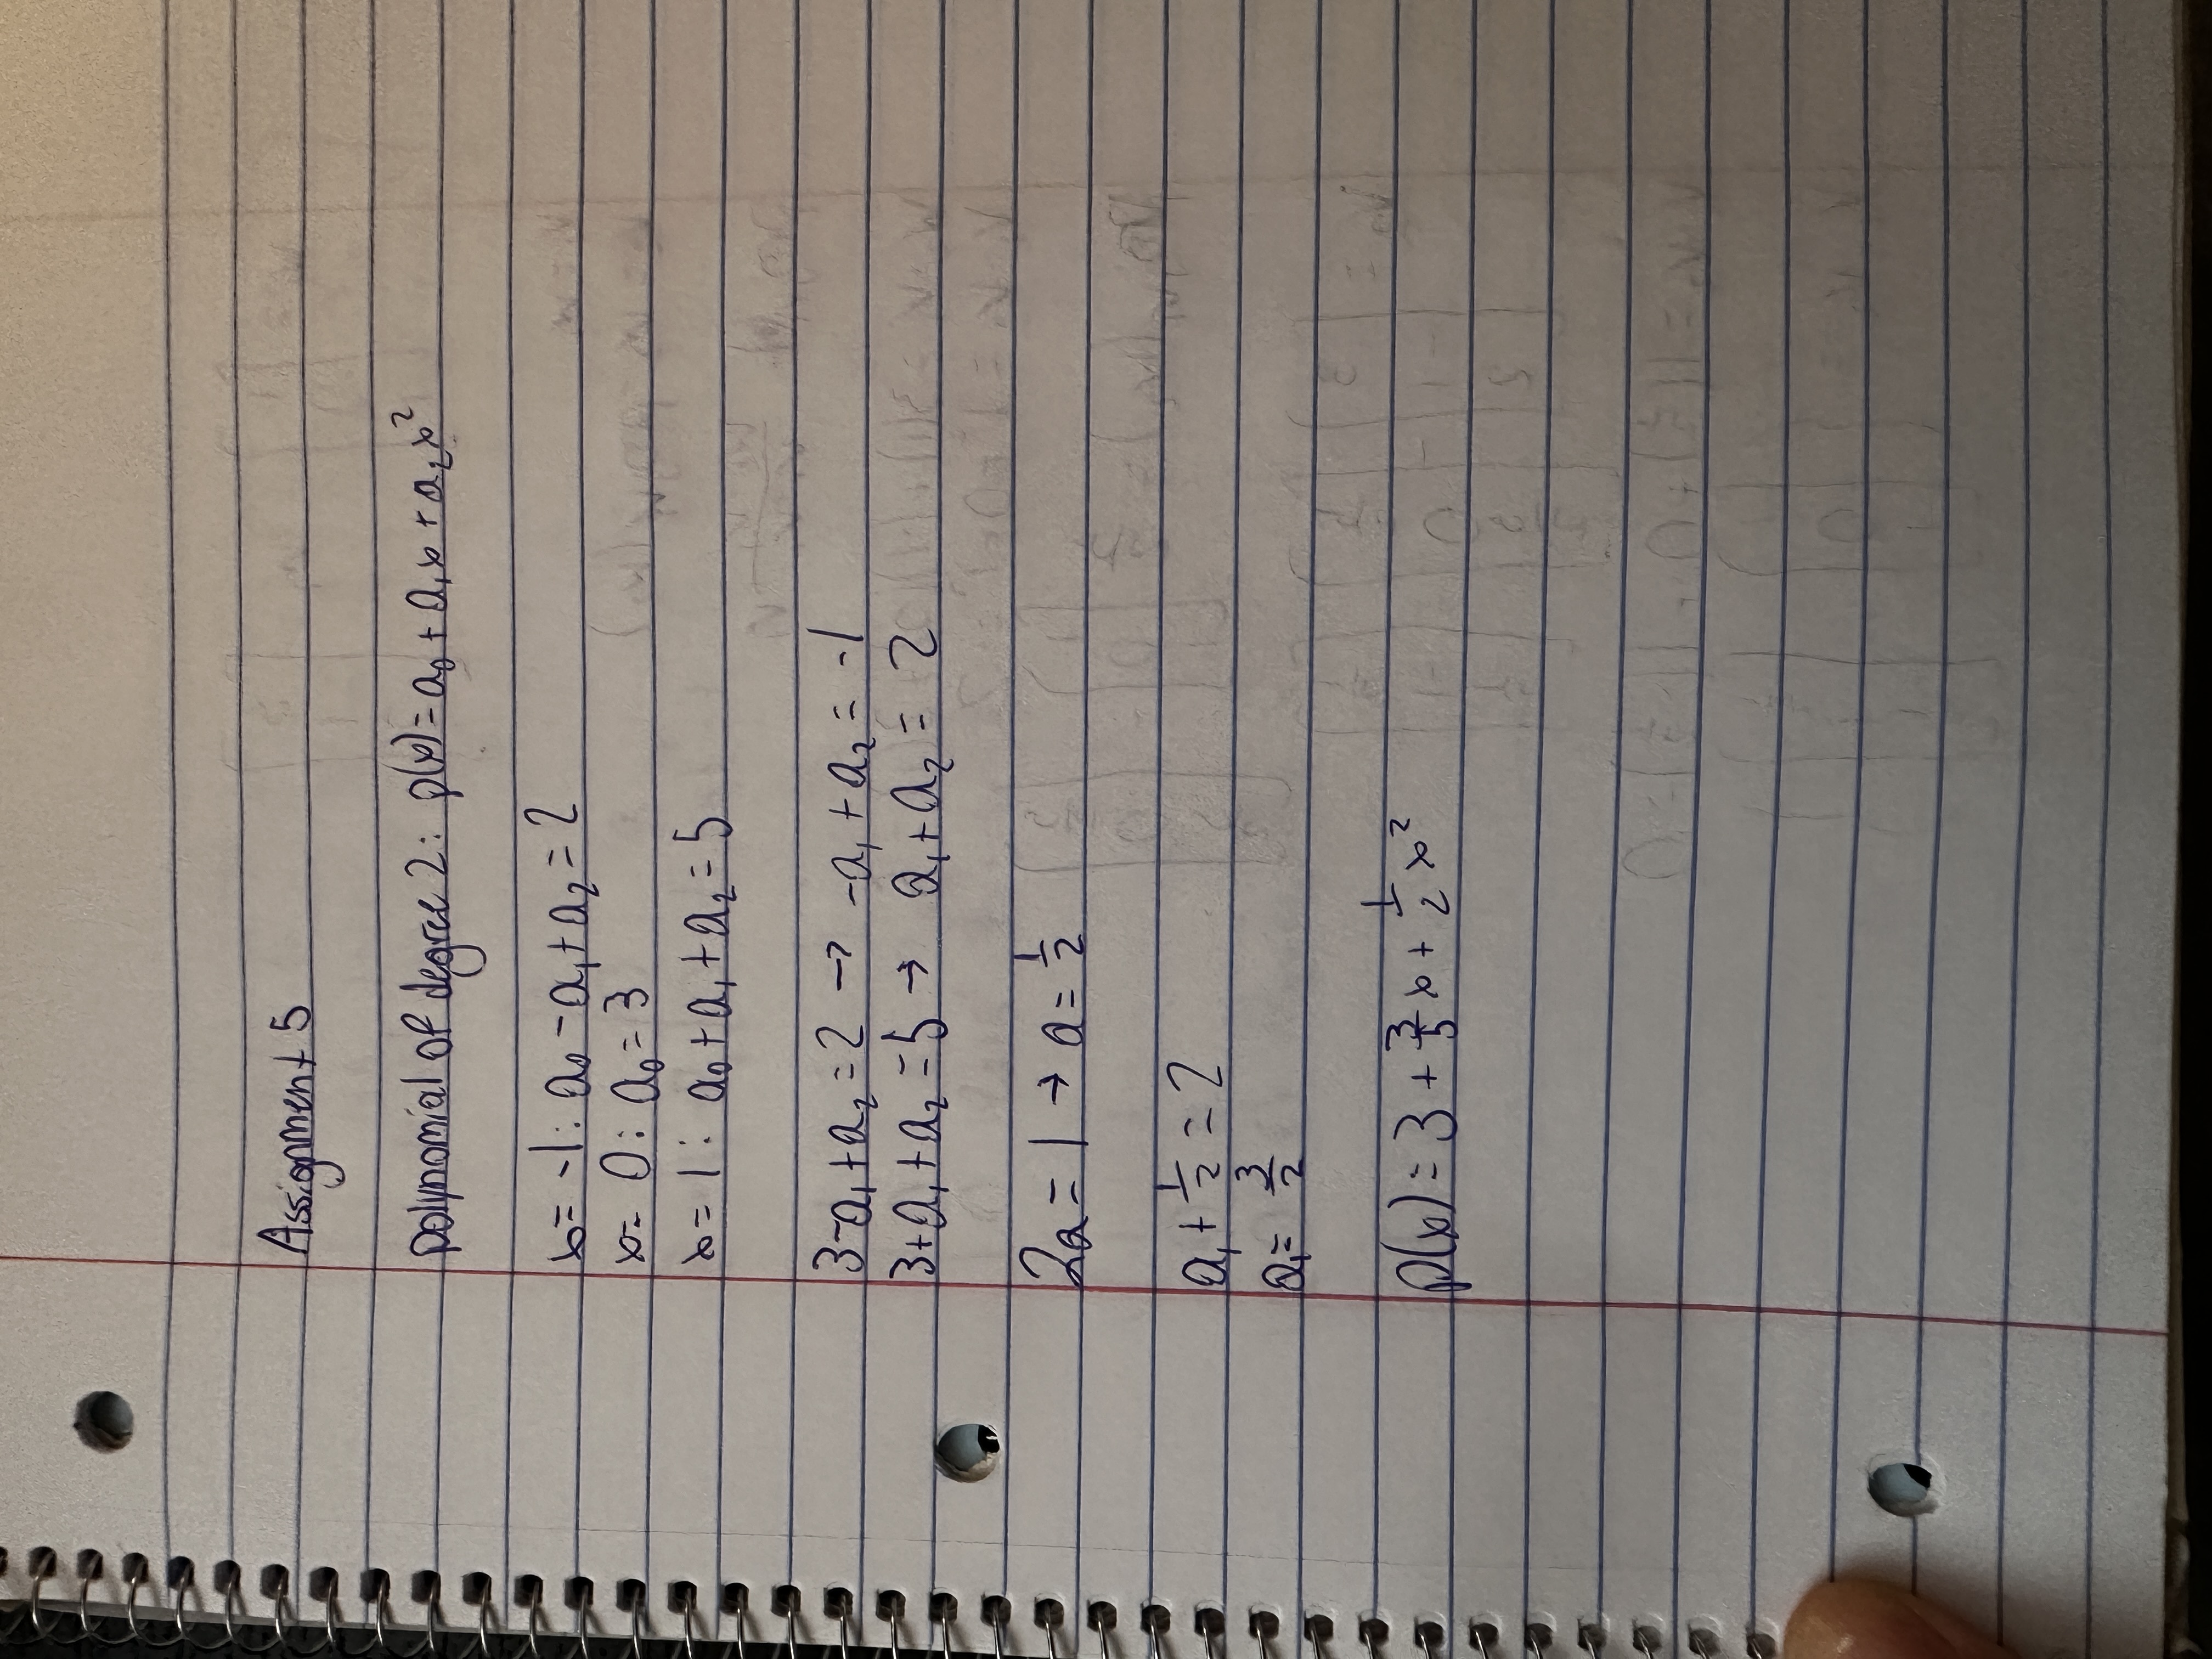 Assignment 5
polynomial of degree 2: p(x) = a₀ + a₁x + a₂x²
x = -1: a₀ - a₁ + a₂ = 2
x = 0: a₀ = 3
x = 1: a₀ + a₁ + a₂ = 5
3 - a₁ + a₂ = 2 → -a₁ + a₂ = -1
3 + a₁ + a₂ = 5 → a₁ + a₂ = 2
2a = 1 → a = 1/2
a₁ + 1/2 = 2
a₁ = 3/2
p(x) = 3 + 3/5 x + 1/2 x²